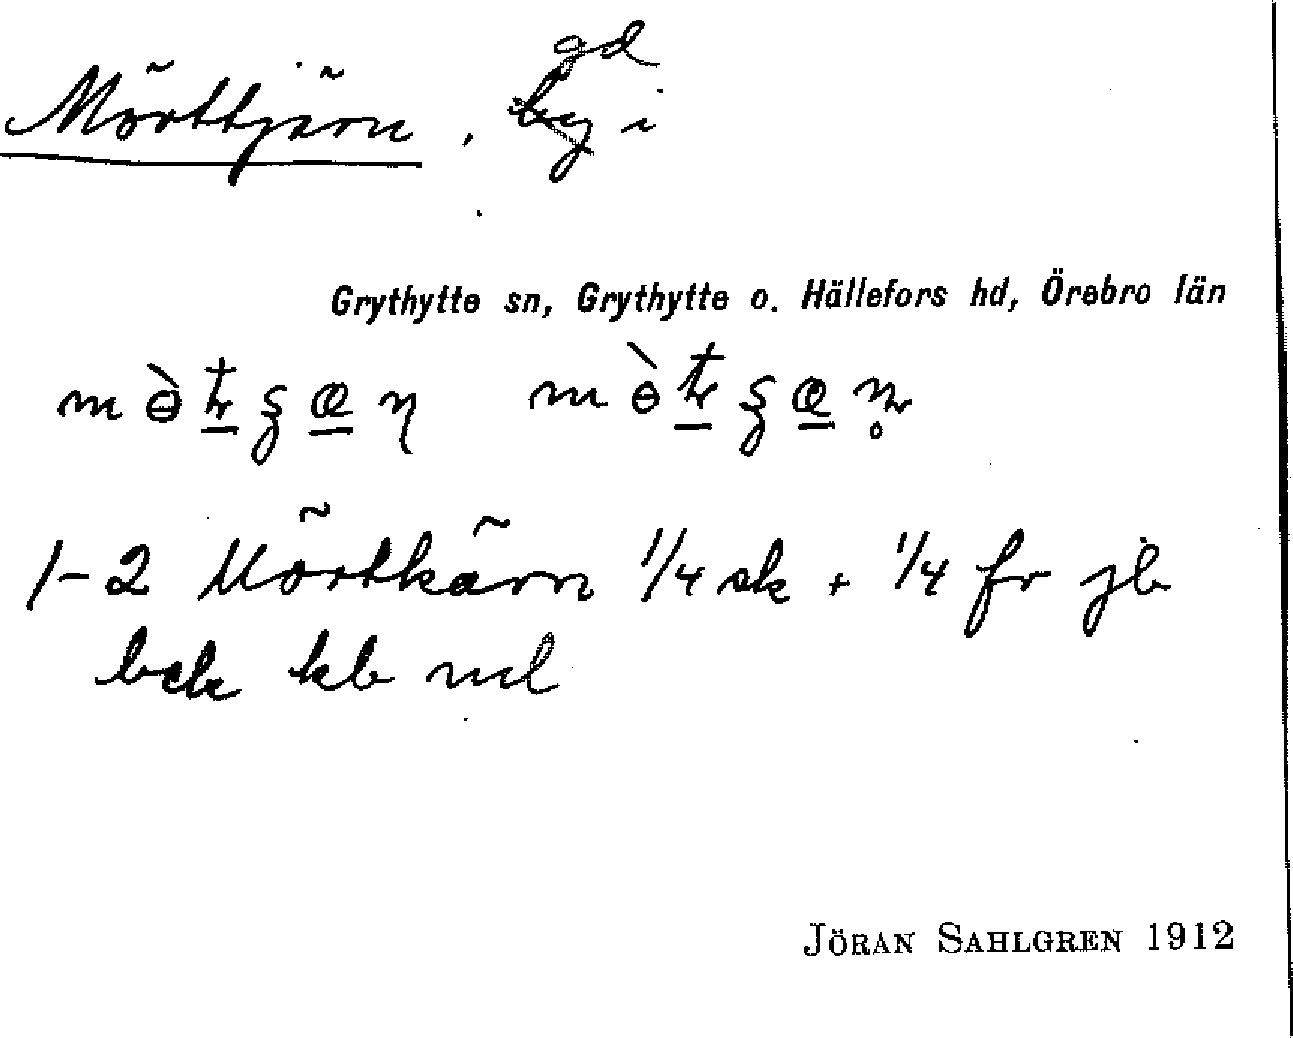 gd
Mörttjärn, by i
Grythytte sn, Grythytte o. Hällefors hd, Örebro län
1-2 Mörtkärn 1/4 sk + 1/4 fr jb
bck kb ml
JÖRAN SAHLGREN 1912